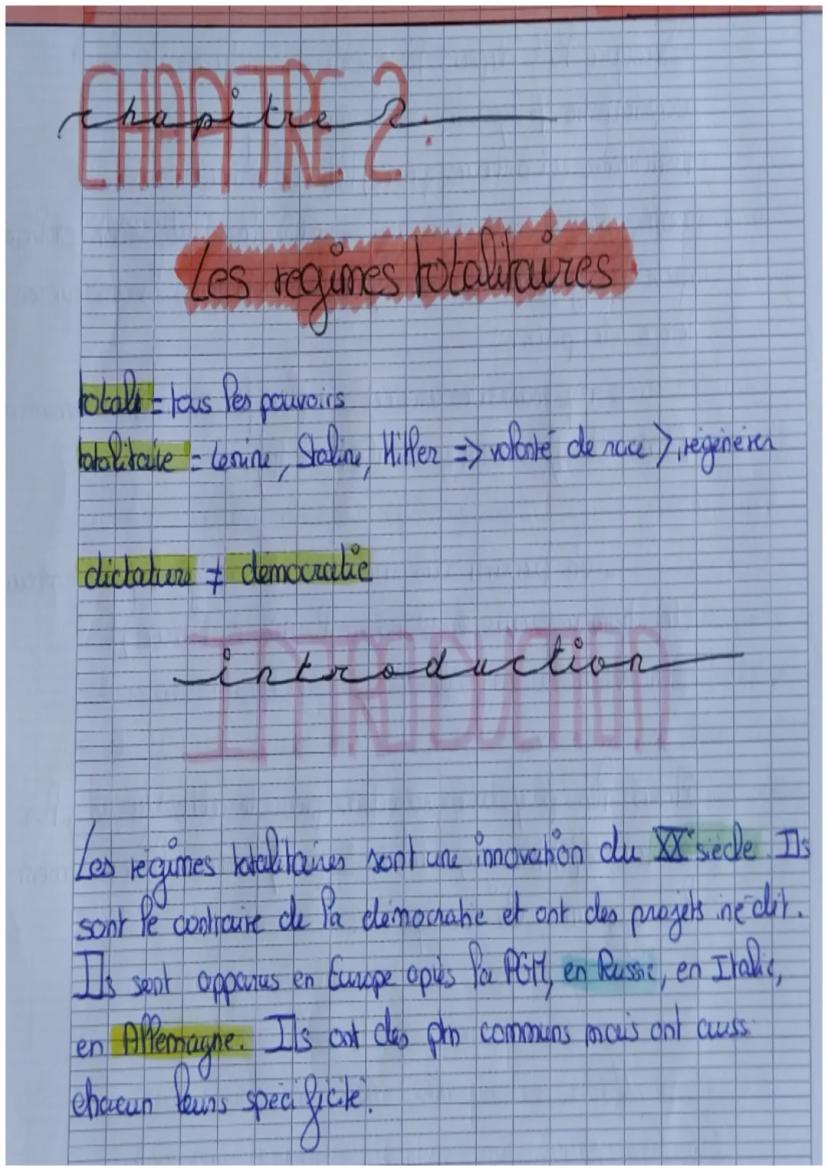 CHAPITRE 2:
chapitre 2
Les régimes totalitaires
totali = tous les pouvoirs
totalitaire = Lenine, Staline, Hitler => volonté de race >, régénérer
dictature ≠ démocratie
INTRODUCTION
introduction
Les régimes totalitaires sont une innovation du XXe siècle. Ils
sont le contraire de la démocratie et ont des projets inédit.
Ils sont apparus en Europe après la PGM, en Russie, en Italie,
en Allemagne. Ils ont des communs mais ont auss
chacun leurs spécificité.